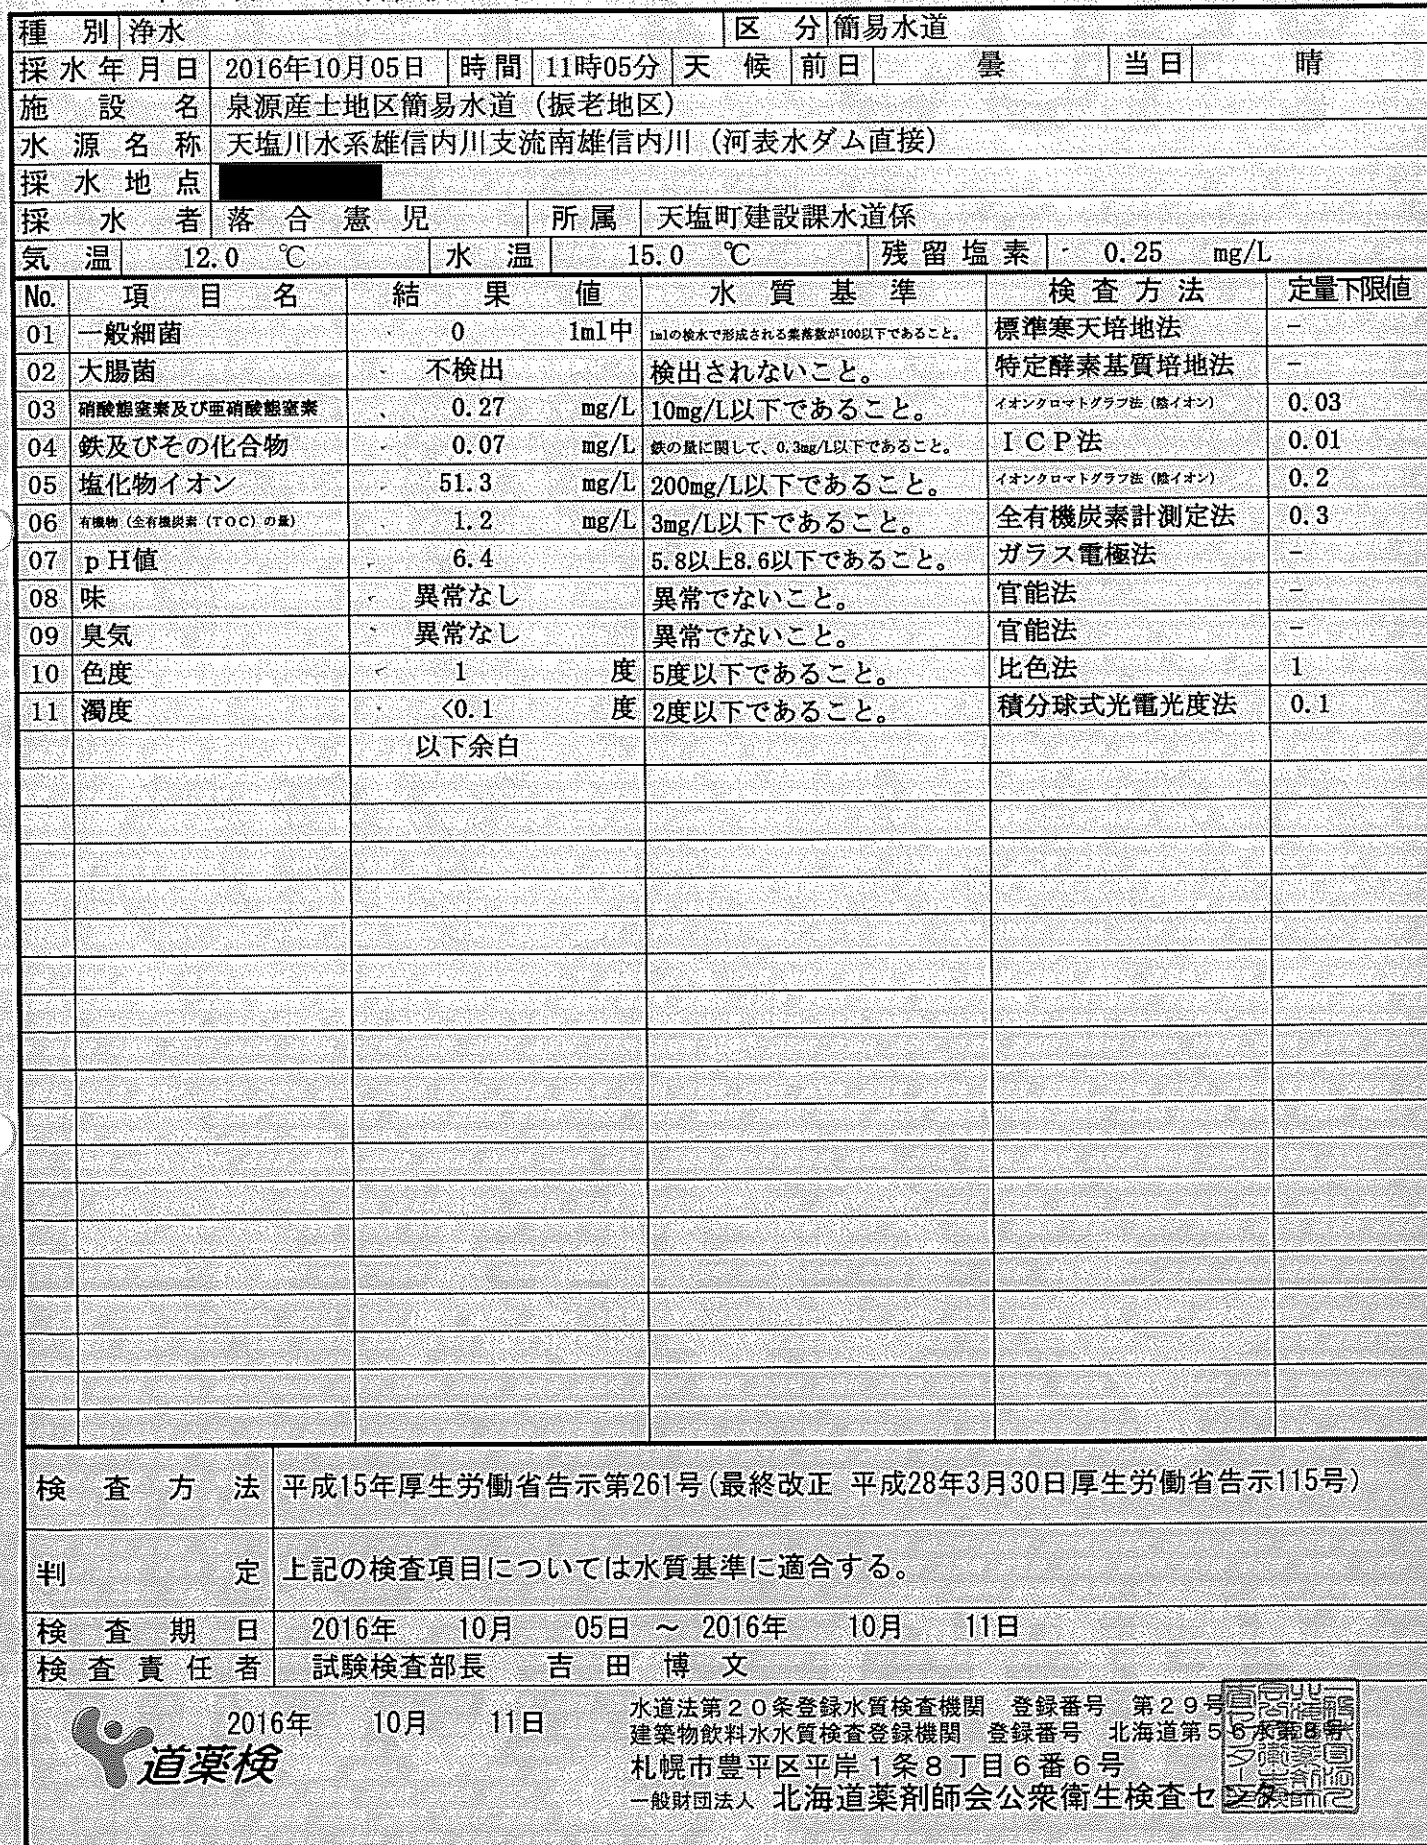 種 別 浄水 区 分 簡易水道
採水年月日 2016年10月05日 時間 11時05分 天 候 前日 曇 当日 晴
施 設 名 泉源産士地区簡易水道（振老地区）
水 源 名 称 天塩川水系雄信内川支流南雄信内川（河表水ダム直接）
採 水 地 点
採 水 者 落 合 憲 児 所属 天塩町建設課水道係
気 温 12.0 ℃ 水 温 15.0 ℃ 残留塩素 0.25 mg/L
No. 項 目 名 結 果 値 水 質 基 準 検 査 方 法 定量下限値
01 一般細菌 0 1ml中 1mlの検水で形成される集落数が100以下であること。 標準寒天培地法 －
02 大腸菌 不検出 検出されないこと。 特定酵素基質培地法 －
03 硝酸態窒素及び亜硝酸態窒素 0.27 mg/L 10mg/L以下であること。 イオンクロマトグラフ法（陰イオン） 0.03
04 鉄及びその化合物 0.07 mg/L 鉄の量に関して、0.3mg/L以下であること。 ＩＣＰ法 0.01
05 塩化物イオン 51.3 mg/L 200mg/L以下であること。 イオンクロマトグラフ法（陰イオン） 0.2
06 有機物（全有機炭素（ＴＯＣ）の量） 1.2 mg/L 3mg/L以下であること。 全有機炭素計測定法 0.3
07 ｐＨ値 6.4 5.8以上8.6以下であること。 ガラス電極法 －
08 味 異常なし 異常でないこと。 官能法 －
09 臭気 異常なし 異常でないこと。 官能法 －
10 色度 1 度 5度以下であること。 比色法 1
11 濁度 <0.1 度 2度以下であること。 積分球式光電光度法 0.1
以下余白
検 査 方 法 平成15年厚生労働省告示第261号(最終改正 平成28年3月30日厚生労働省告示115号)
判 定 上記の検査項目については水質基準に適合する。
検 査 期 日 2016年 10月 05日 ～ 2016年 10月 11日
検 査 責 任 者 試験検査部長 吉 田 博 文
道薬検 2016年 10月 11日
水道法第２０条登録水質検査機関 登録番号 第２９号
建築物飲料水水質検査登録機関 登録番号 北海道第５６水第８号
札幌市豊平区平岸１条８丁目６番６号
一般財団法人 北海道薬剤師会公衆衛生検査センター